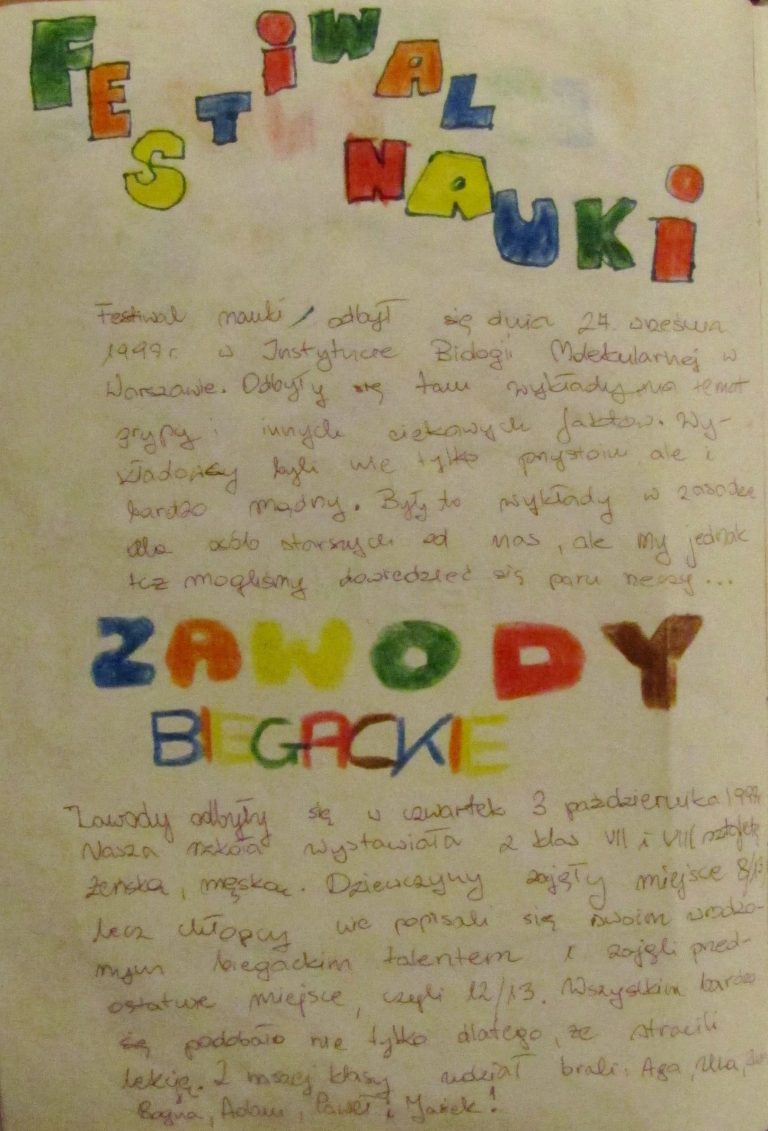 FESTiWAL
NAUKi
Festiwal nauki odbył się dnia 27. września
1999 r. w Instytucie Biologii Molekularnej w
Warszawie. Odbyły się tam wykłady na temat
grypy i innych ciekawych faktów. Wy-
kładowcy byli nie tylko przystojni ale i
bardzo mądrzy. Były to wykłady w zasadzie
dla osób starszych od nas, ale my jednak
też mogliśmy dowiedzieć się paru rzeczy...
ZAWODY
BIEGACKIE
Zawody odbyły się w czwartek 3 października
Nasza szkoła wystawiała z klas VII i VIII sztafetę
żeńską, męską. Dziewczyny zajęły miejsce 8/13
lecz chłopcy popisali się swoim wrodzo-
nym biegackim talentem i zajęli przed-
ostatnie miejsce, czyli 12/13. Wszystkim bardzo
się podobało nie tylko dlatego, że stracili
lekcję. Z naszej klasy udział brali: Aga, Ula,
Adam, Paweł i Jacek!